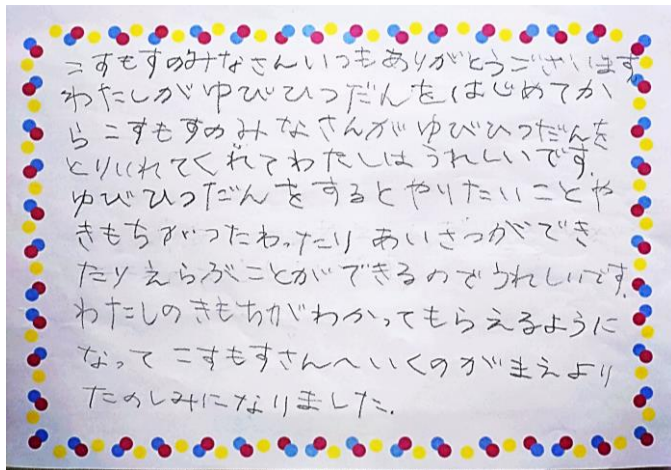 こすもすのみなさんいつもありがとうございます。
わたしがゆびひつだんをはじめてか
らこすもすのみなさんがゆびひつだんを
とりいれてくれてわたしはうれしいです。
ゆびひつだんをするとやりたいことや
きもちがつたわったりあいさつができ
たりえらぶことができるのでうれしいです。
わたしのきもちがわかってもらえるように
なってこすもすさんへいくのがまえより
たのしみになりました。